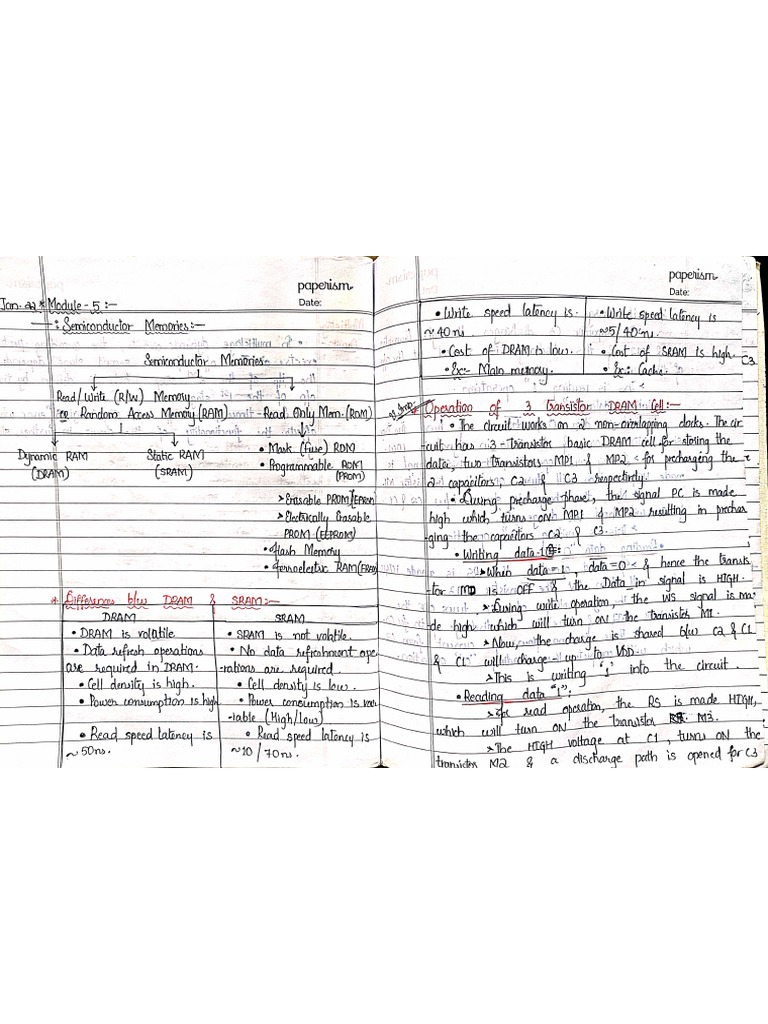 paperism
Date:
Jan-22 * Module-5:-
: Semiconductor Memories:-
Semiconductor Memories
Read/Write (R/W) Memory
or Random Access Memory (RAM)
Read Only Mem. (ROM)
Dynamic RAM
(DRAM)
Static RAM
(SRAM)
• Mask (Fuse) ROM
• Programmable ROM
(PROM)
> Erasable PROM (EPROM
> Electrically Erasable
PROM (EEPROM)
• Flash Memory
• Ferroelectric RAM (FRAM)
* Differences b/w DRAM & SRAM:-
DRAM
• DRAM is volatile
• Data refresh operations
are required in DRAM.
• Cell density is high.
• Power consumption is high
• Read speed latency is
~50ns.
SRAM
• SRAM is not volatile.
• No data refreshment ope
-rations are required.
• Cell density is low.
• Power consumption is var
-iable (High/low)
• Read speed latency is
~10/70ns.
paperism
Date:
• Write speed latency is
~40ns
• Cost of DRAM is low.
• Ex:- Main memory.
• Write speed latency is
~5/40ns
• Cost of SRAM is high.
• Ex:- Cache.
C3
* Operation of 3 transistor DRAM Cell:-
• The circuit works on 2 non-overlapping clocks. The cir
-cuit has 3-Transistor basic DRAM cell for storing the
data, two transistors MP1 & MP2 for precharging the
2 capacitors, C2 & C3 respectively.
• During precharge phase, the signal PC is made
high which turns on MP1 & MP2 resulting in prechar
-ging the capacitors C2 & C3.
• Writing data-1:
> When data=1, data=0 & hence the transis
-tor MD is OFF & the Data in signal is HIGH.
> During write operation, the WS signal is ma-
de high which will turn ON the transistor M1.
> Now, the charge is shared b/w C2 & C1
& C1 will charge up to VDD.
> This is writing '1' into the circuit.
• Reading data "1":
> For read operation, the RS is made HIGH,
which will turn ON the transistor M3.
> The HIGH voltage at C1, turns ON the
transistor M2 & a discharge path is opened for C3